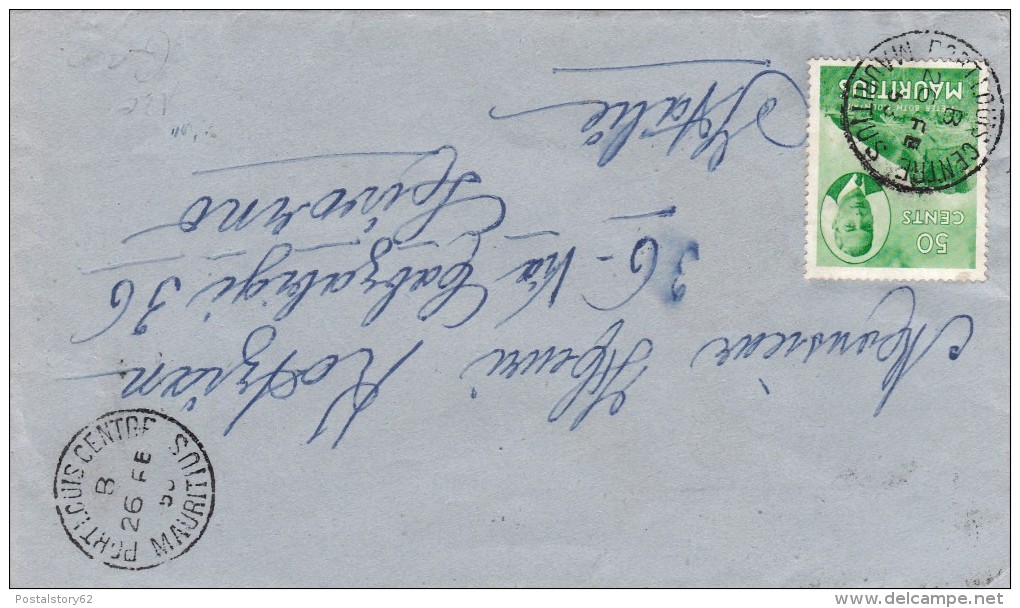 Monsieur Henri Kotzian
36 - Via Calzabigi 36
Livorno
Italie
50
CENTS
PETER BOTH
MAURITIUS
PORT LOUIS CENTRE
B
FE
MAURITIUS
PORT LOUIS CENTRE
B
26 FE
MAURITIUS
Postalstory62
delcampe.net